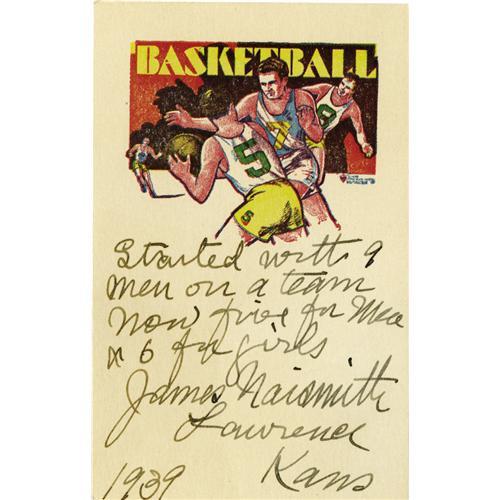 BASKETBALL
5
7
8
5
Started with 9
men on a team
Now five for Men
& 6 for girls
James Naismith
Lawrence
Kans
1939